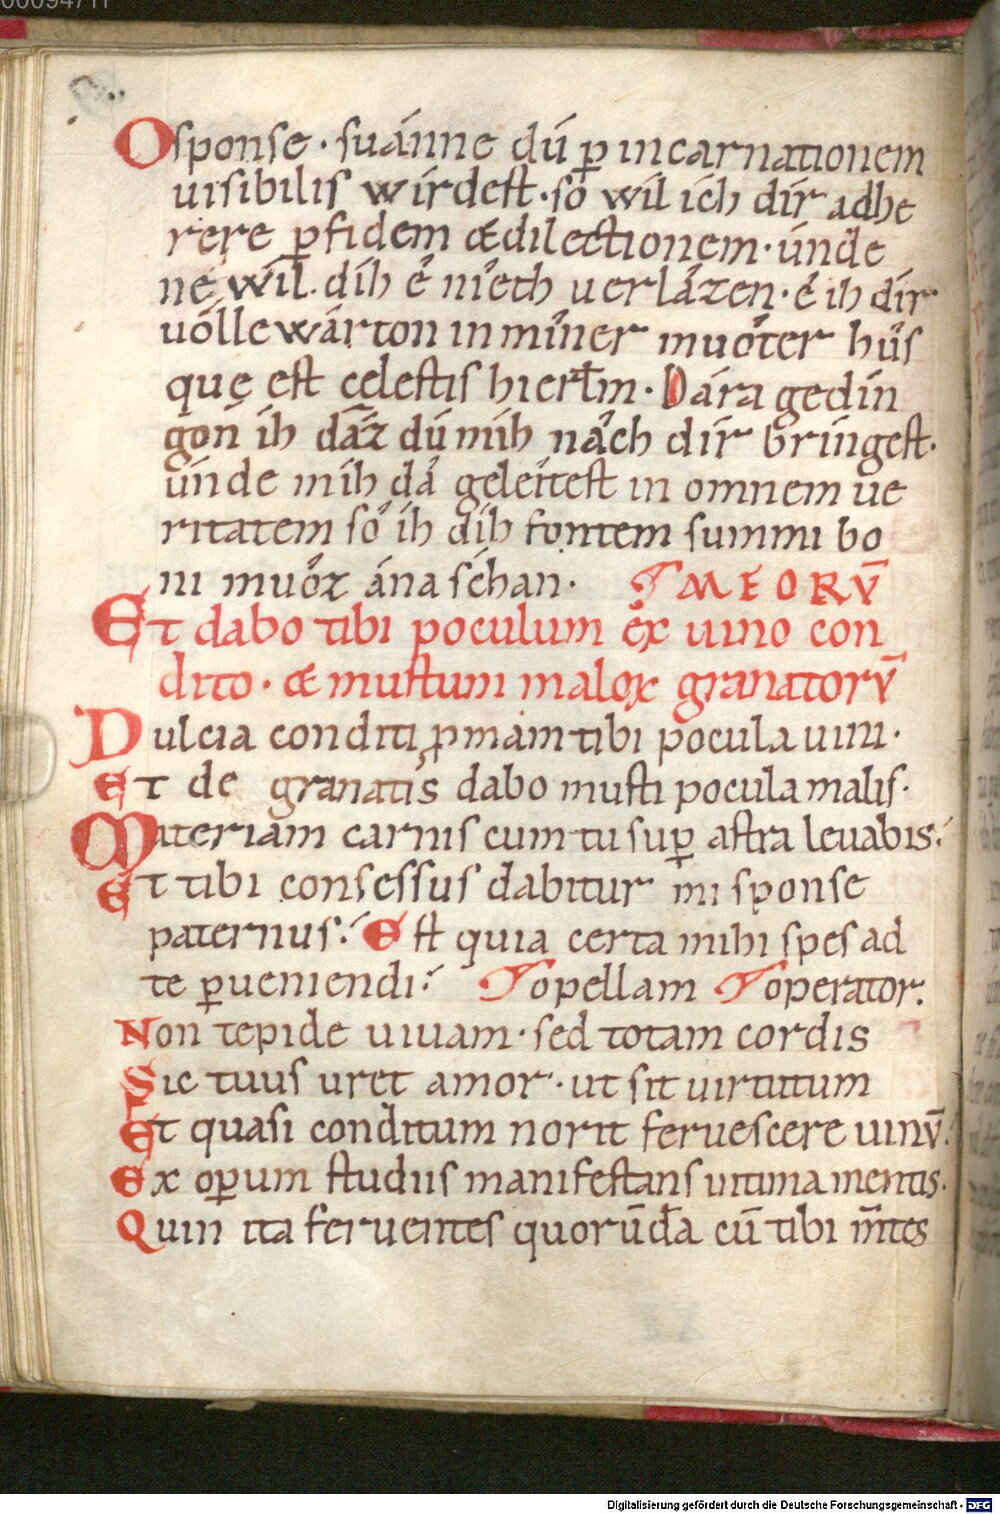 O sponse · suánne dú ꝑ incarnationem
uisibilis wírdest · só wil ich dír adhe
rere ꝑ fidem & dilectionem · únde
ne wil dih é niech uerlâzen · é ih dír
uólle wárton in mîner muóter hûs
que est celestis hierł̄m · Dára gedin
gón ih dáz dú mih nâch dir bringest ·
únde mih dâ geleítest in omnem ue
ritatem só ih dih fontem summi bo
ni muôz ána séhan ·
MEORV̄
Et dabo tibi poculum ex uino con
dito · & mustum maloꝝ granatorv̄
Dulcia conditi ꝓmam tibi pocula uini ·
Et de granatis dabo musti pocula malis ·
Materiam carnis cum tu suꝑ astra leuabis ·
Et tibi consessus dabitur mi sponse
paternus · Est quia certa mihi spes ad
te ꝑueniendi · Topellam Toperator .
Non tepide uiuam · sed totam cordis
Sic tuus uret amor · ut sit uirtutum
Et quasi conditum norit feruescere uinv̄ .
Ex oꝑum studiis manifestans intima mentis ·
Quin ita feruentes quorūdā cū tibi m̄tes
Digitalisierung gefördert durch die Deutsche Forschungsgemeinschaft - DFG